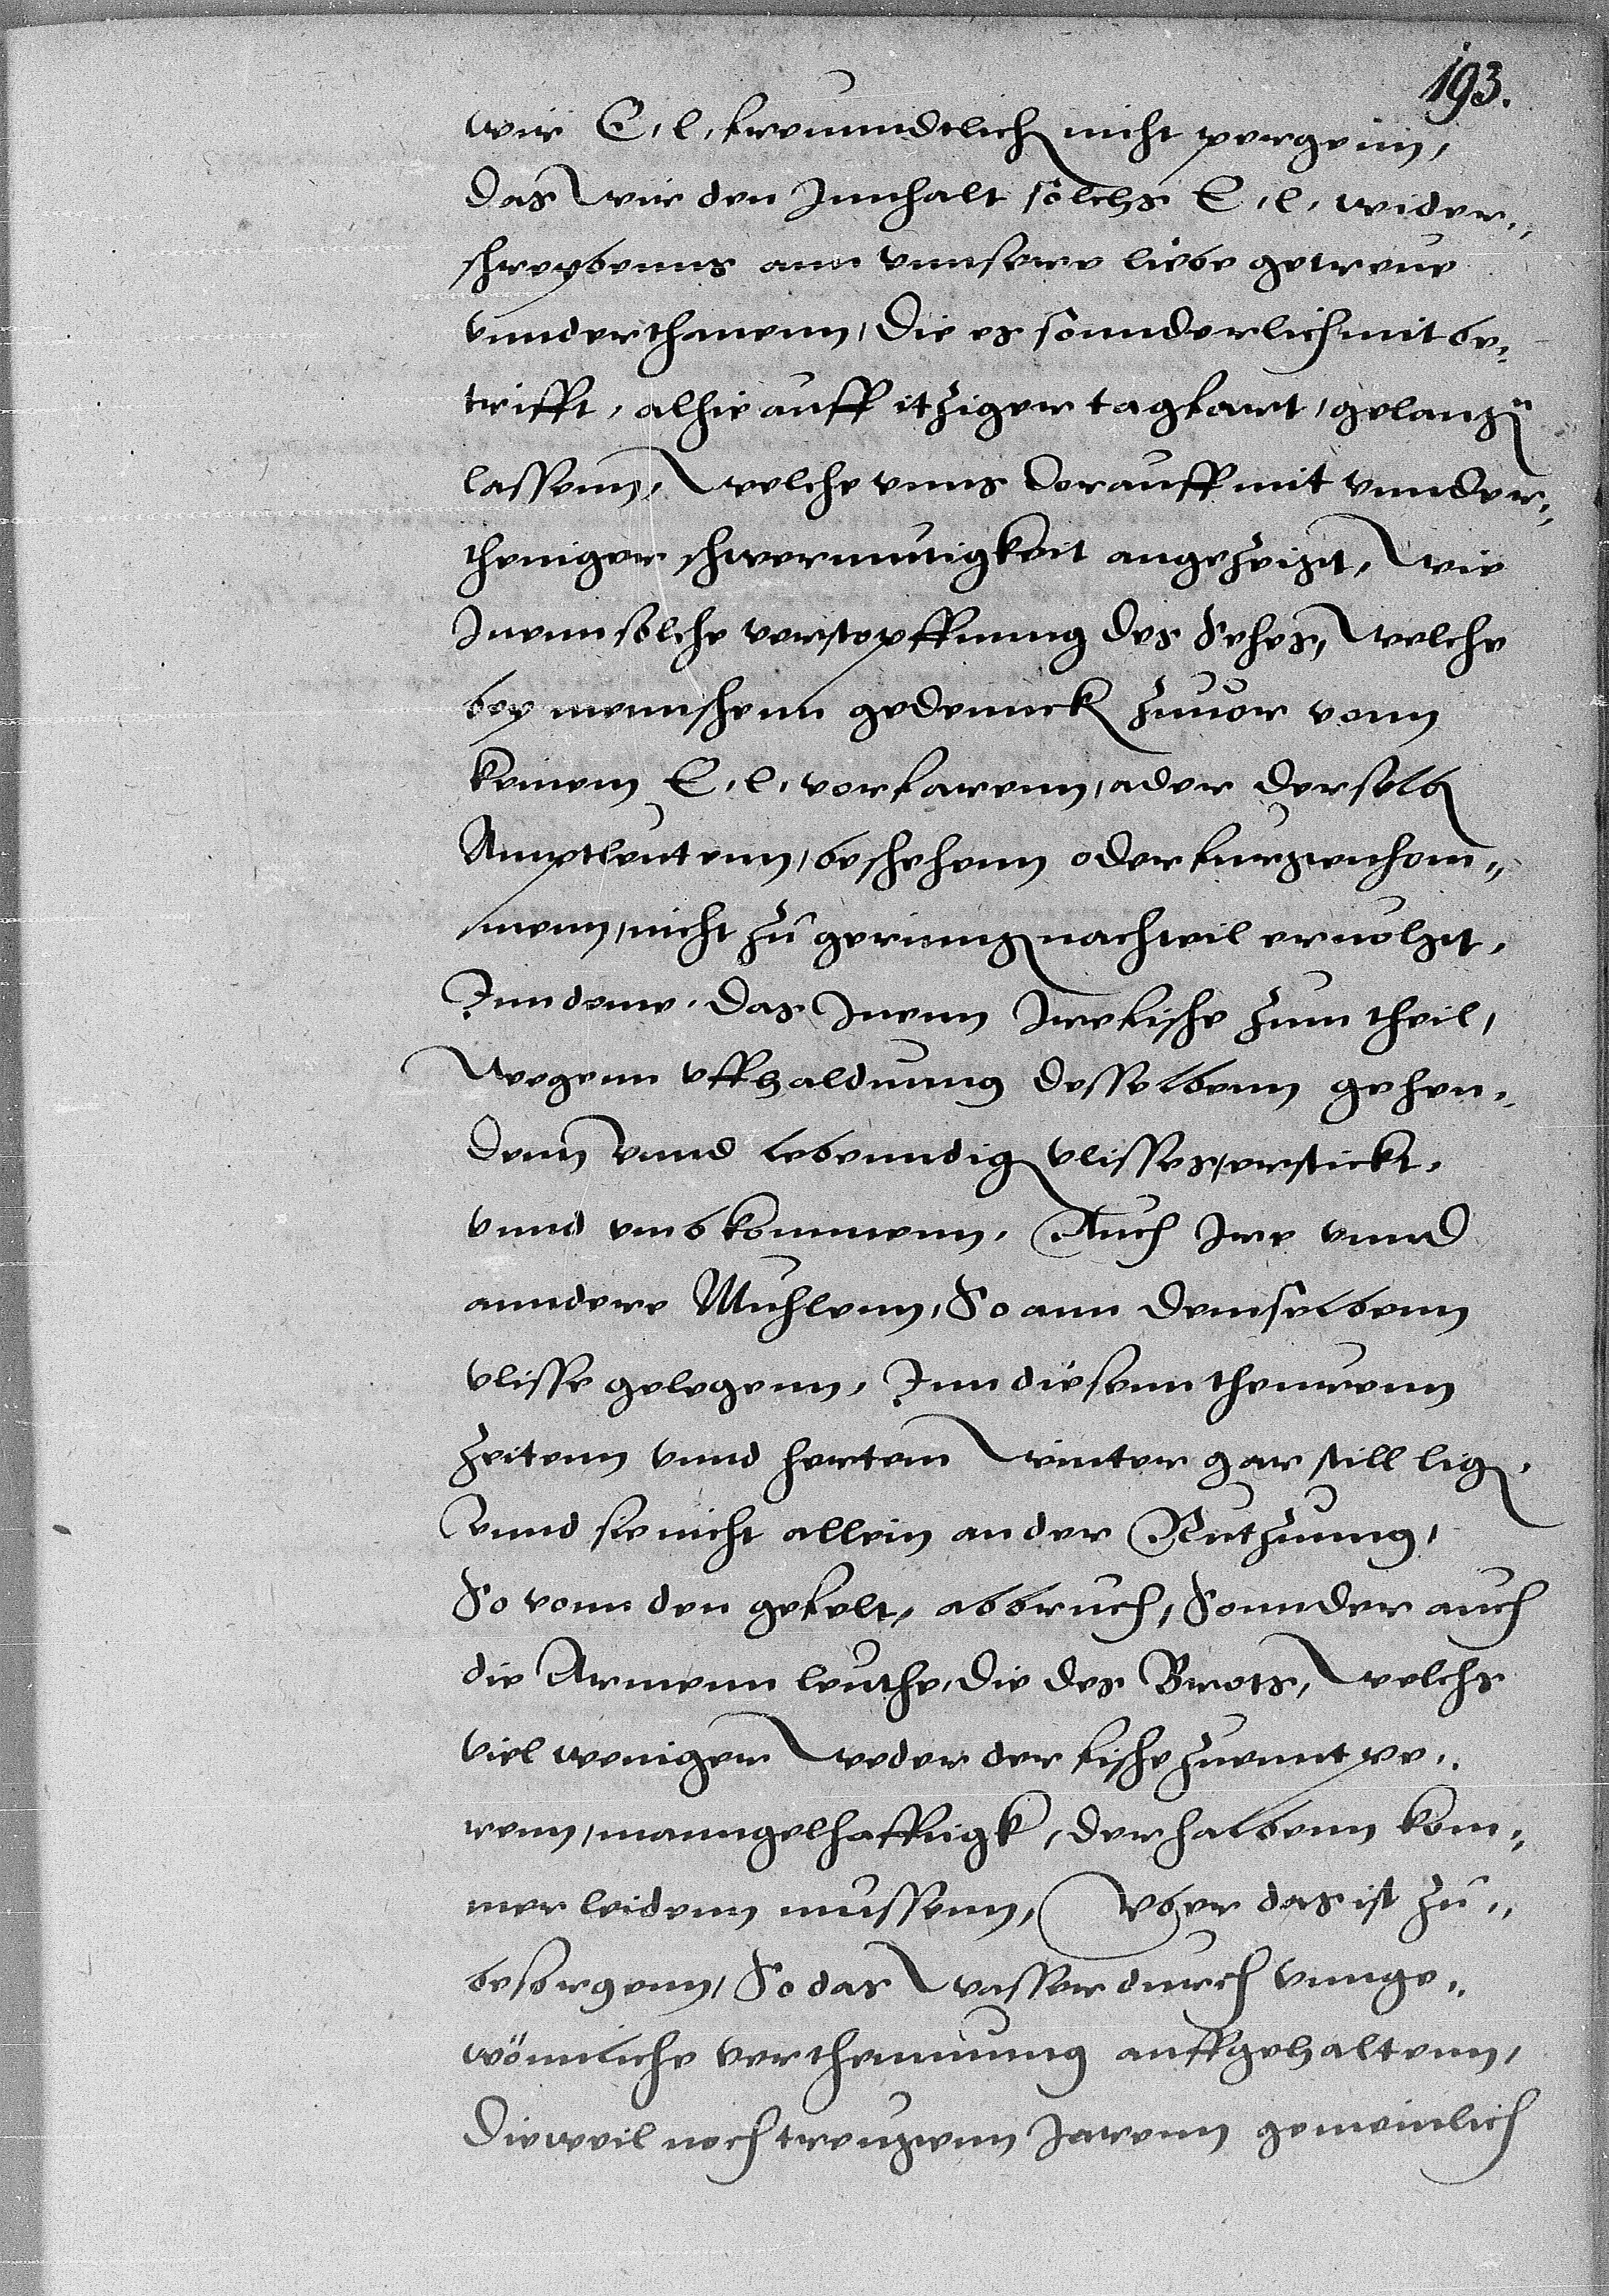 193.
wir E. l. freunndtlich nicht pergenn,
das wir den Innhalt solchs E. l. wider„
schreybenns ann vnnsere liebe getreue
vnnderthanenn, die es sonnderlich mit be„
trifft, alhie auff itziger tagfart, gelangen
lassenn, welche vnns dorauff mit vnnder„
theniger schwermutigkeit angezeigt, wie
Inenn solche verstopffunng des Sehes, welche
bey mennschenn gedennck zuuor vonn
keinem E. l. vorfarenn, ader derselben
Amptleutenn, beschehenn oder furgenhom„
menn, nicht zu geringen nachteil eruolgt,
Inn deme, das Inenn Ire fische zum theil,
wegenn vffhaldunng desselbenn gehen„
denn vnnd lebenndigen vlisses, erstickt,
vnnd vmbkommenn, Auch Ire vnnd
anndere Muhlenn, So ann demselbenn
vlisse gelegenn, Inn diesenn theurenn
Zeitenn vnnd hertem winter gar still ligen,
Vnnd sie nicht allein an der Nutzunng,
So vonn den gefelt, abbruch, Sonnder auch
die Armenn leuthe, die des Brots, welchs
viel weniger weder der fische zuentpe„
renn, manngelhafftigk, derhalbenn kom„
mer leidenn mussenn, Vber das ist zu„
besorgenn, So das wasser durch vnnge„
wönnliche verthemmunng auffgehaltenn,
Dieweil noch treugenn Jarenn gemeinlich